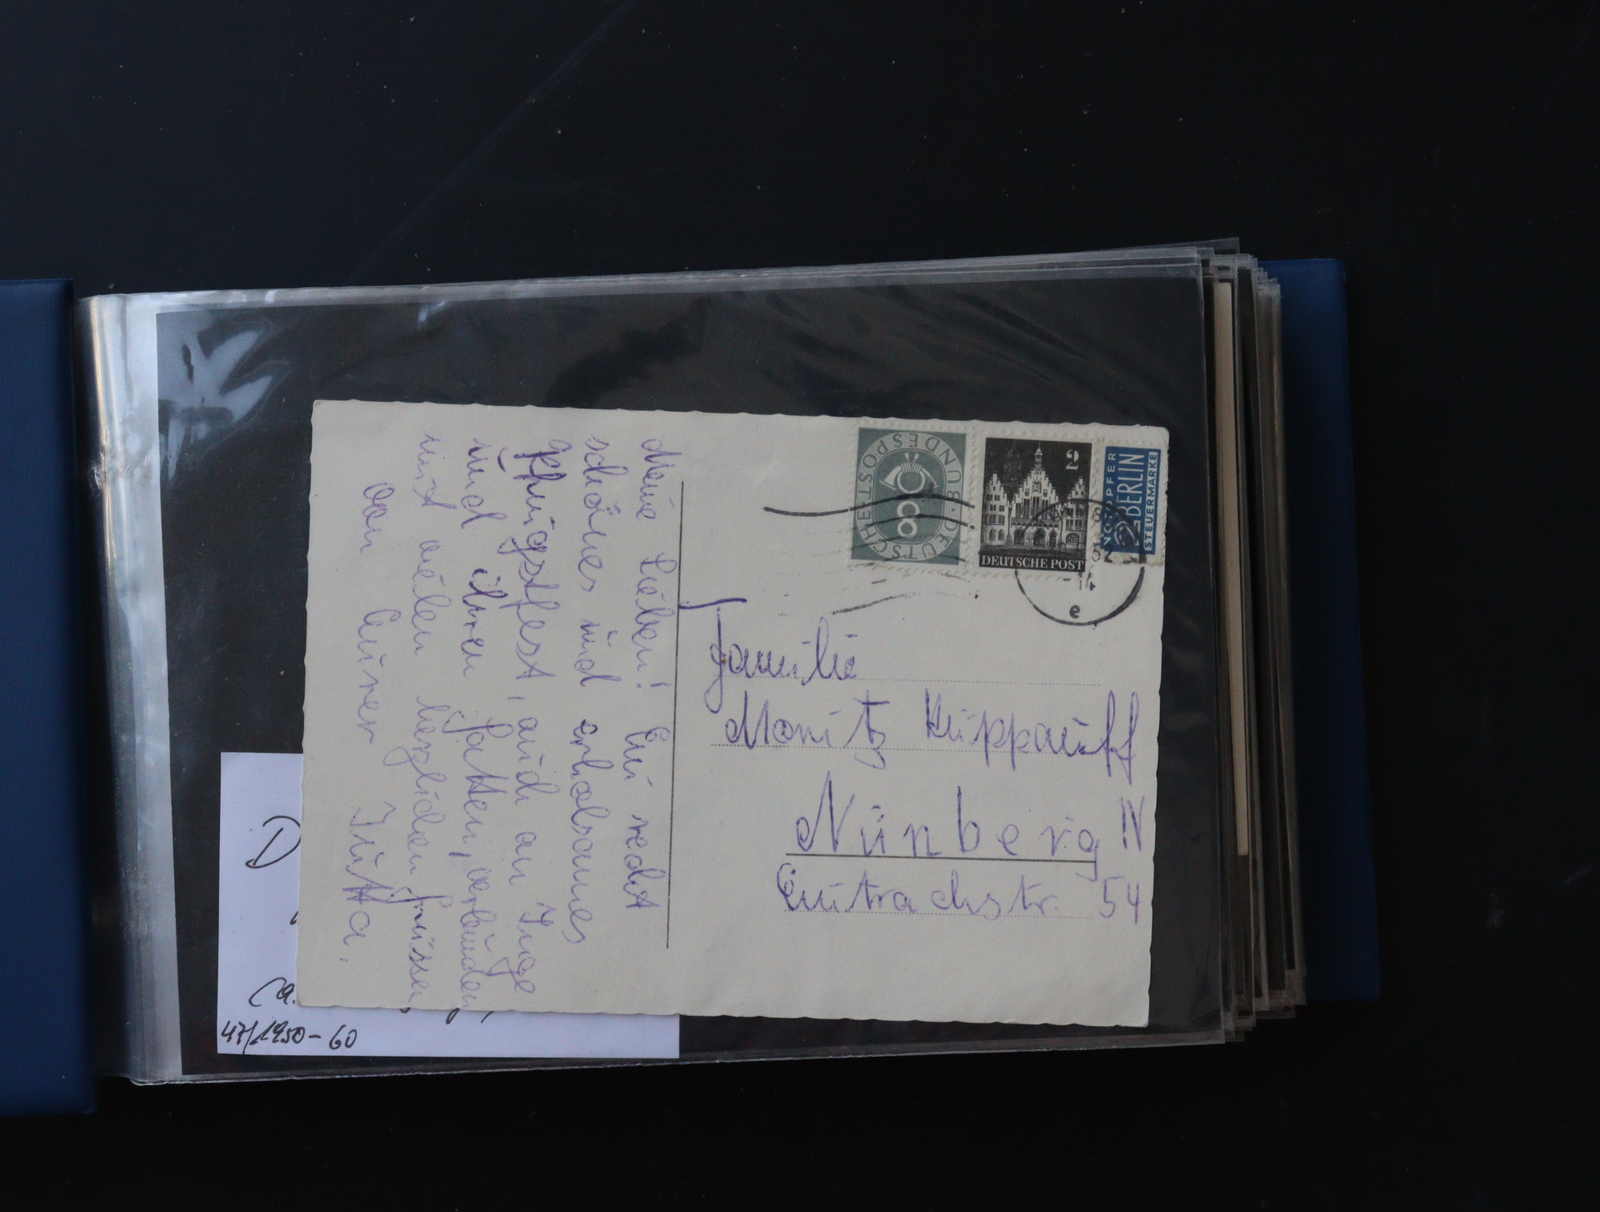 Meine Lieben! Ein recht
schönes und erholsames
Pfingstfest, auch an Inge
und ihren Gatten, verbunden
mit vielen herzlichen Grüssen,
von Eurer Jutta.
DEUTSCHE BUNDESPOST
8
2
DEUTSCHE POST
NOTOPFER
2 BERLIN
STEUERMARKE
52
e
Familie
Moritz Küppauff
Nürnberg IV
Guntrachstr. 54
D
Ca.
47/1950-60